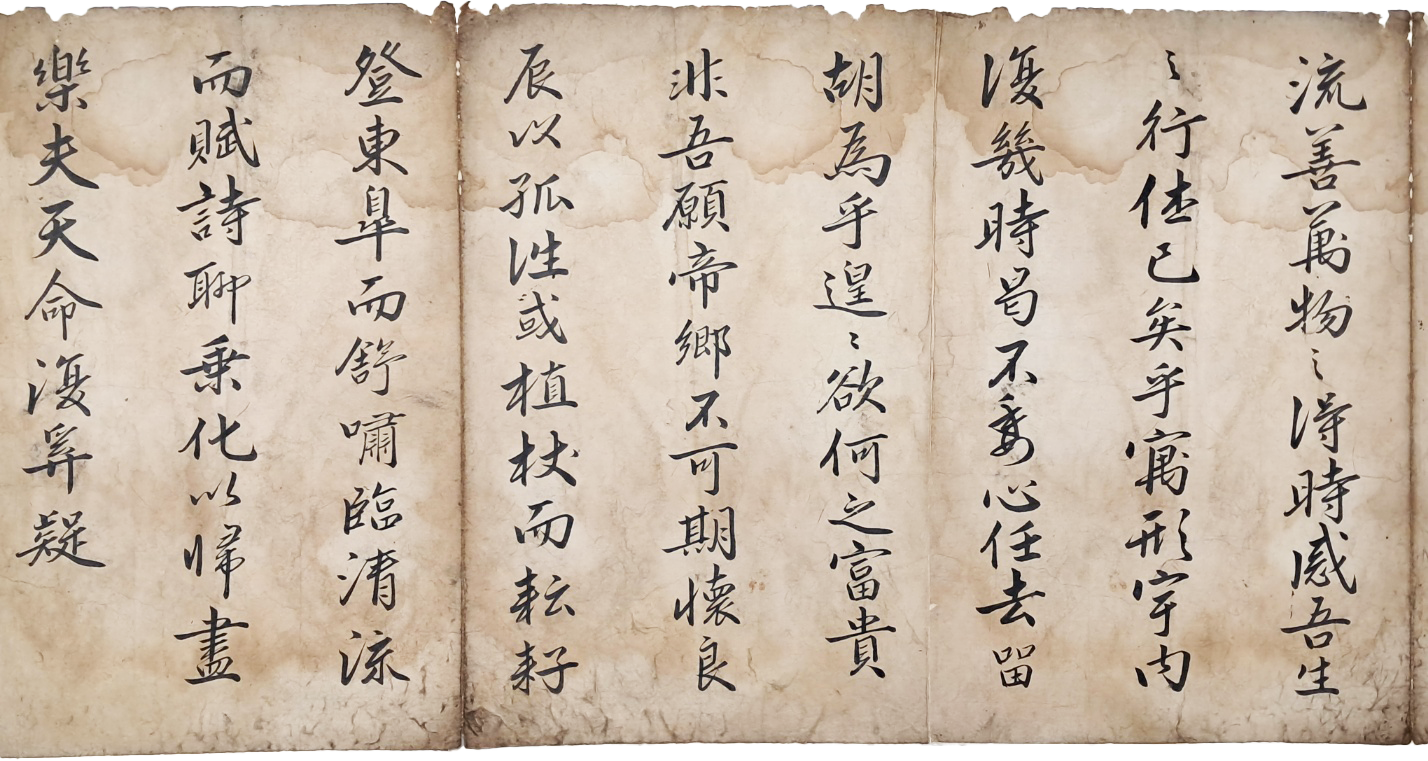 流善萬物〻得時感吾生
〻行休已矣乎寓形宇内
復幾時曷不委心任去留
胡為乎遑〻欲何之富貴
非吾願帝鄉不可期懷良
辰以孤往或植杖而耘耔
登東皋而舒嘯臨清流
而賦詩聊乘化以歸盡
樂夫天命復奚疑